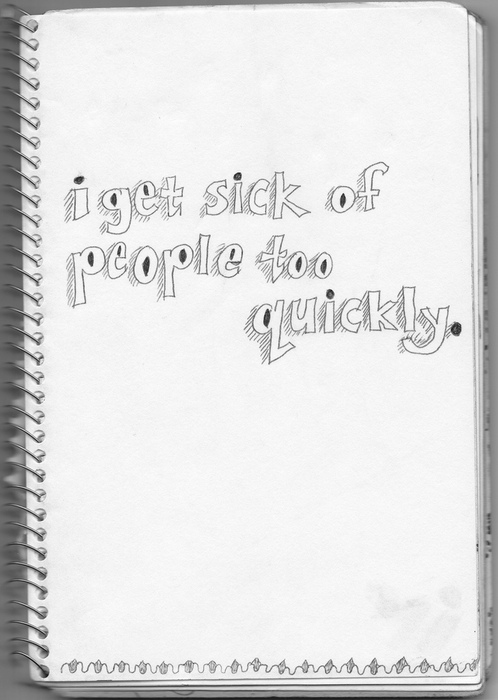 i get sick of
people too
quickly.